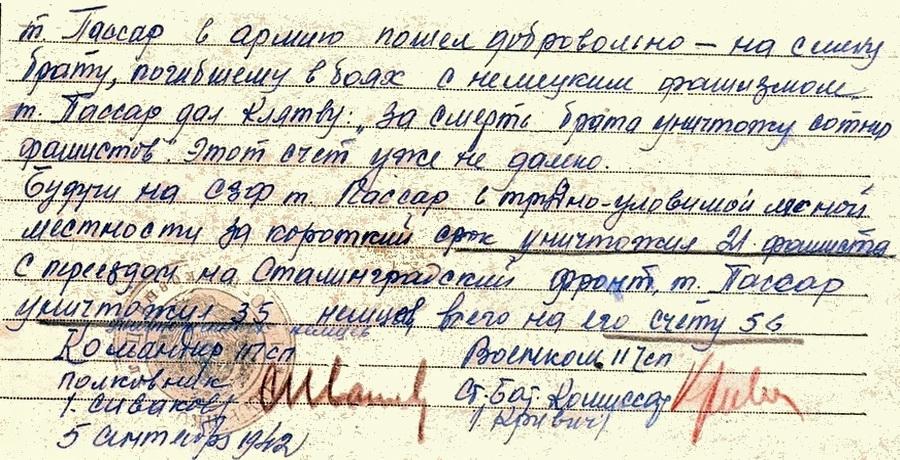 т. Пассар в армию пошел добровольно – на смену
брату, погибшему в боях с немецким фашизмом.
т. Пассар дал клятву: „За смерть брата уничтожу сотню
фашистов". Этот счет уже не далеко.
Будучи на СЗФ т. Пассар в трудно-уловимой лесной
местности за короткий срок уничтожил 21 фашиста
С переездом на Сталинградский фронт, т. Пассар
уничтожил 35 немцев всего на его счету 56
Командир 117сп Военком 117сп
полковник Ст. Бат. Комиссар
/Сиваков/ /Кривич/
5 Сентября 1942